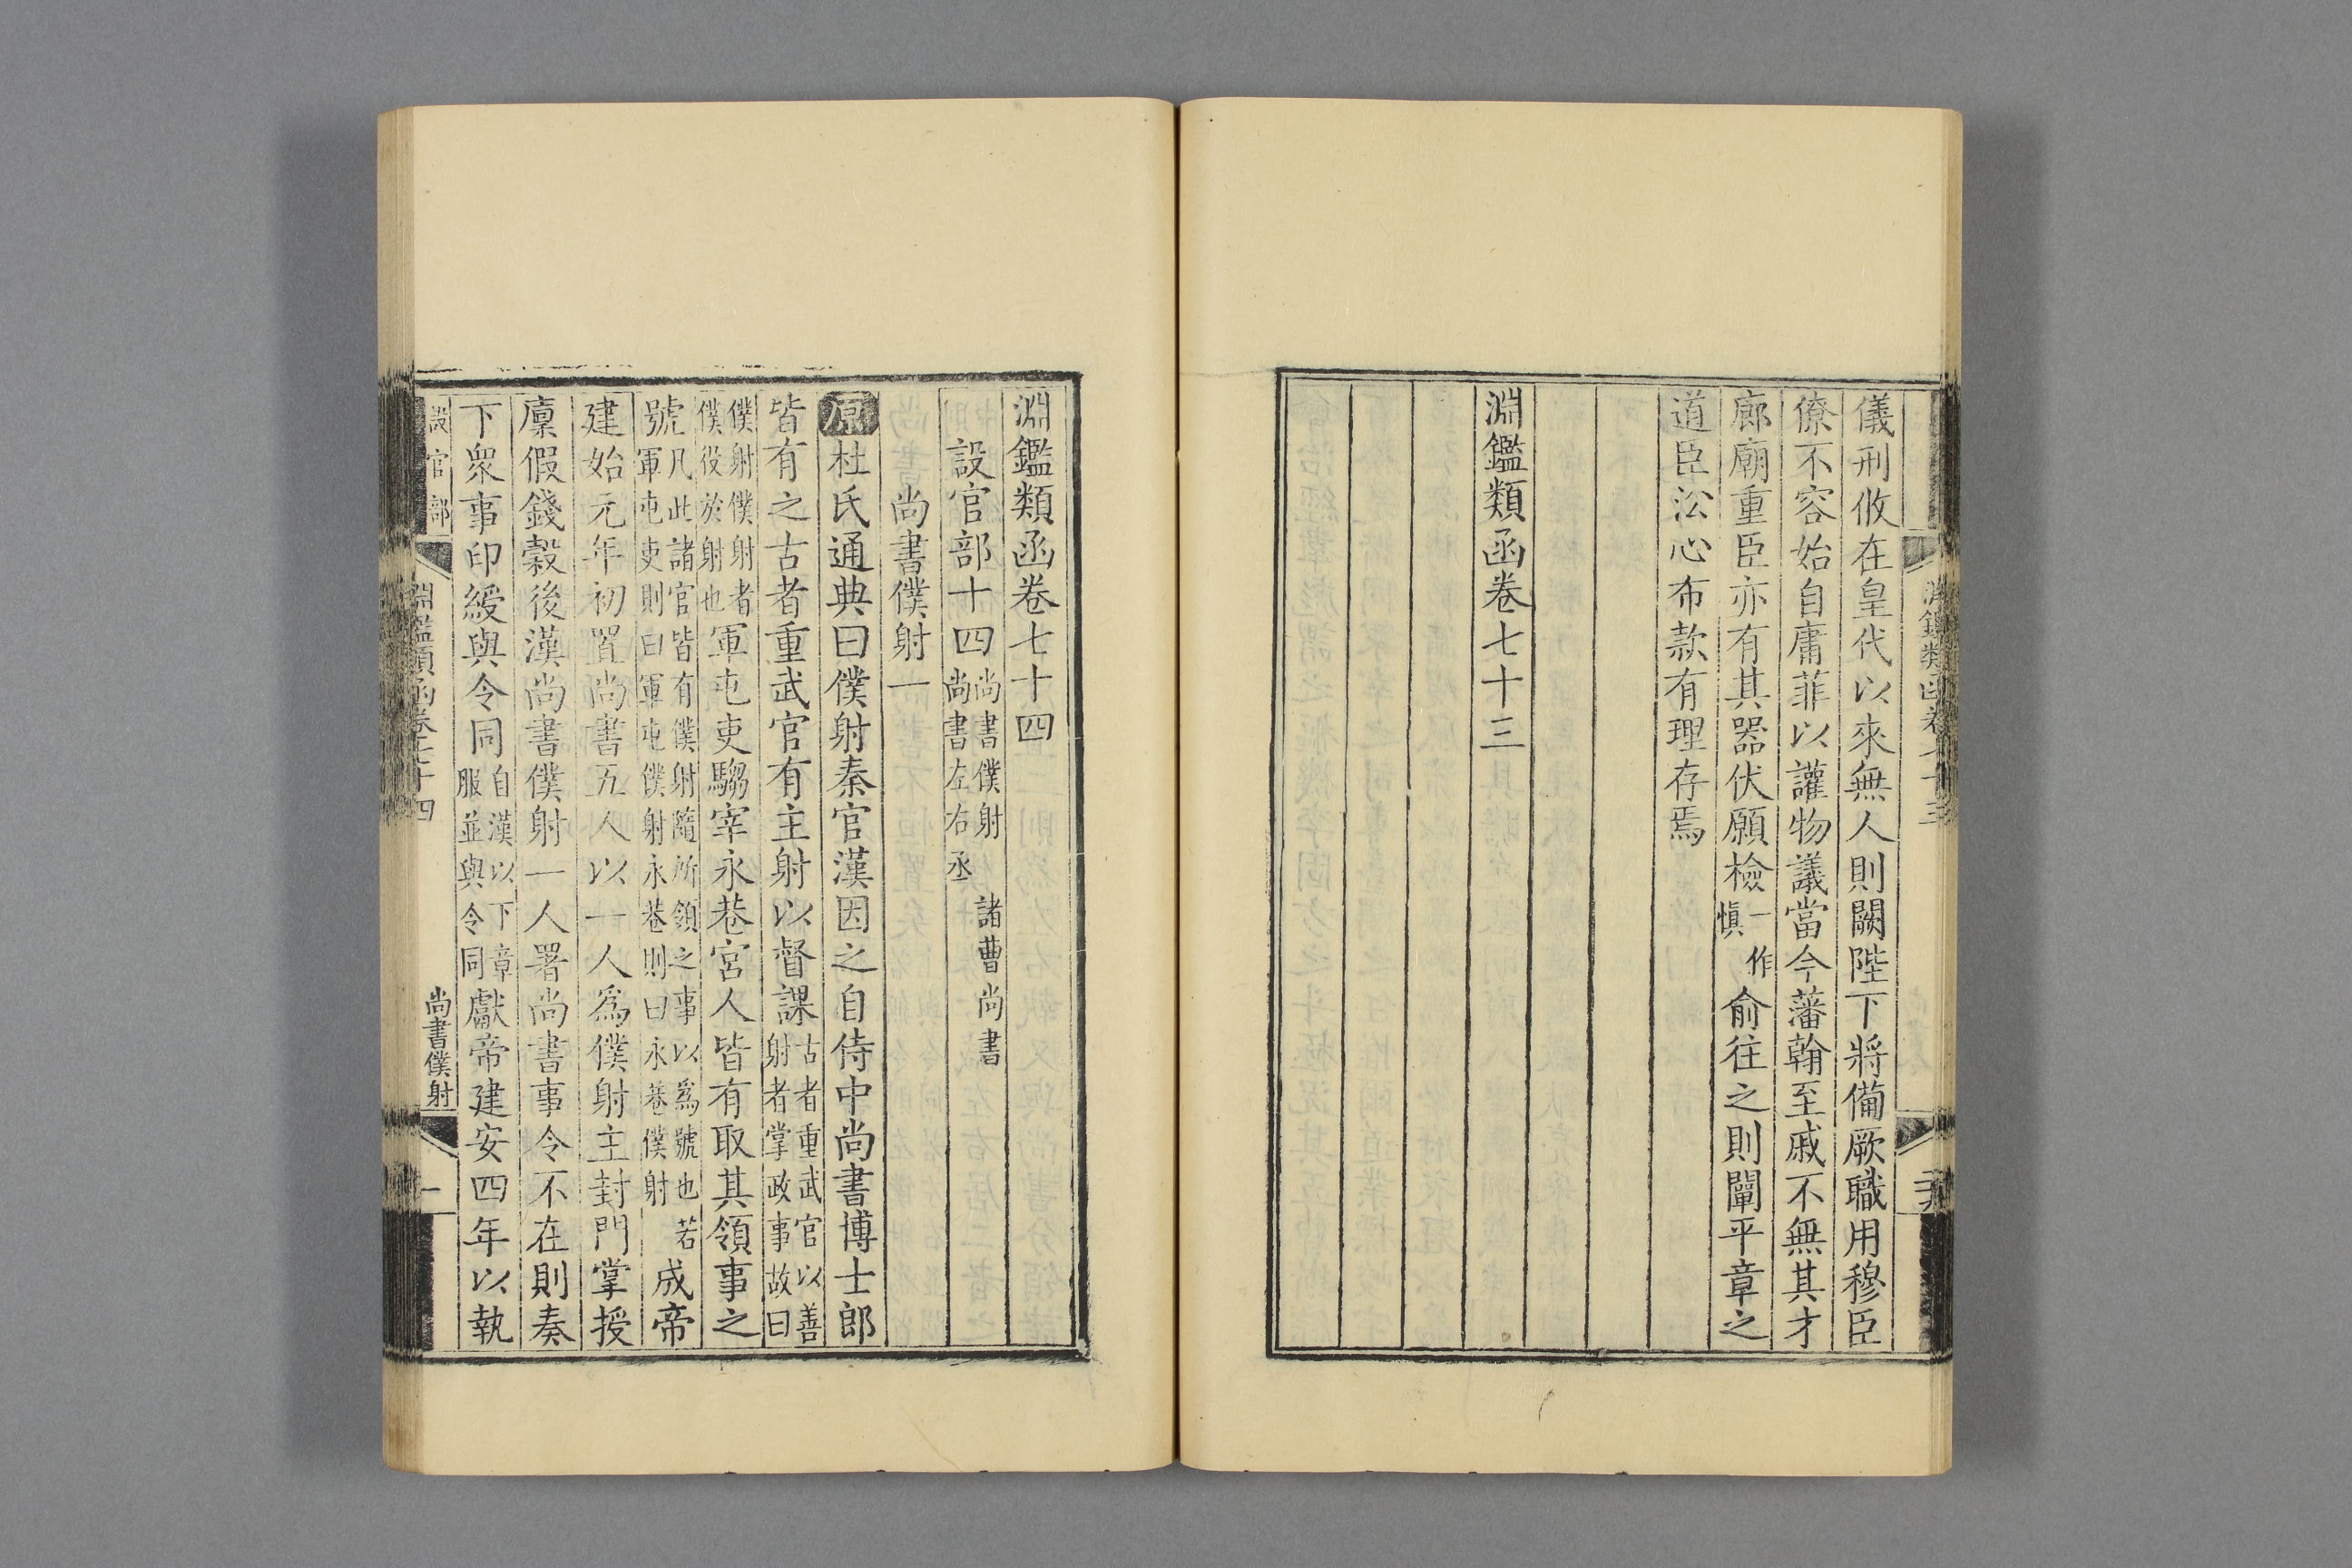 儀刑攸在皇代以來無人則闕陛下將備厥職用穆臣
僚不容始自庸菲以讙物議當今藩翰至戚不無其才
廊廟重臣亦有其器伏願檢一作慎俞往之則闡平章之
道臣訟心布款有理存焉
淵鑑類函卷七十三
淵鑑類函卷七十四
設官部十四尚書僕射 諸曹尚書尚書左右丞
尚書僕射一
原杜氏通典曰僕射秦官漢因之自侍中尚書博士郎
皆有之古者重武官有主射以督課古者重武官以善射者掌政事故曰
僕射僕射者僕役於射也軍屯吏騶宰永巷宮人皆有取其領事之
號凡此諸官皆有僕射隨所領之事以為號也若軍屯吏則曰軍屯僕射永巷則曰永巷僕射成帝
建始元年初置尚書五人以一人爲僕射主封門掌授
廩假錢穀後漢尚書僕射一人署尚書事令不在則奏
下衆事印綬與令同自漢以下章服並與令同獻帝建安四年以執
設官部
淵鑑類函卷七十四
尚書僕射
一